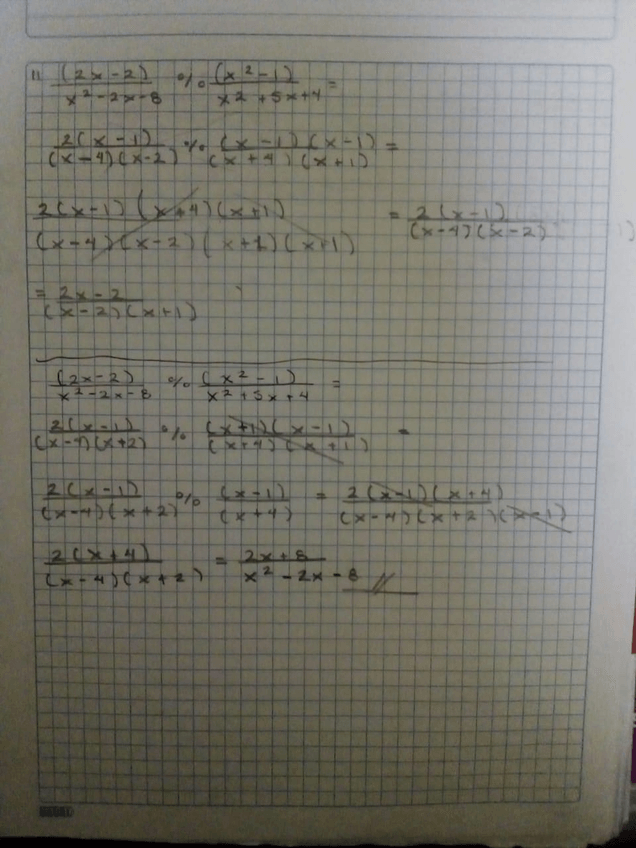 11 (2x-2)/(x²-2x-8) % (x²-1)/(x²+5x+4) =
2(x-1)/((x-4)(x-2)) % (x-1)(x-1)/((x+4)(x+1)) =
2(x-1)(x+4)(x+1)/((x-4)(x-2)(x+1)(x+1)) = 2(x-1)/((x-4)(x-2))
= (2x-2)/((x-2)(x+1))
(2x-2)/(x²-2x-8) % (x²-1)/(x²+5x+4) =
2(x-1)/((x-4)(x+2)) % (x+1)(x-1)/((x+4)(x+1)) =
2(x-1)/((x-4)(x+2)) % (x-1)/(x+4) = 2(x-1)(x+4)/((x-4)(x+2)(x-1))
2(x+4)/((x-4)(x+2)) = (2x+8)/(x²-2x-8) //